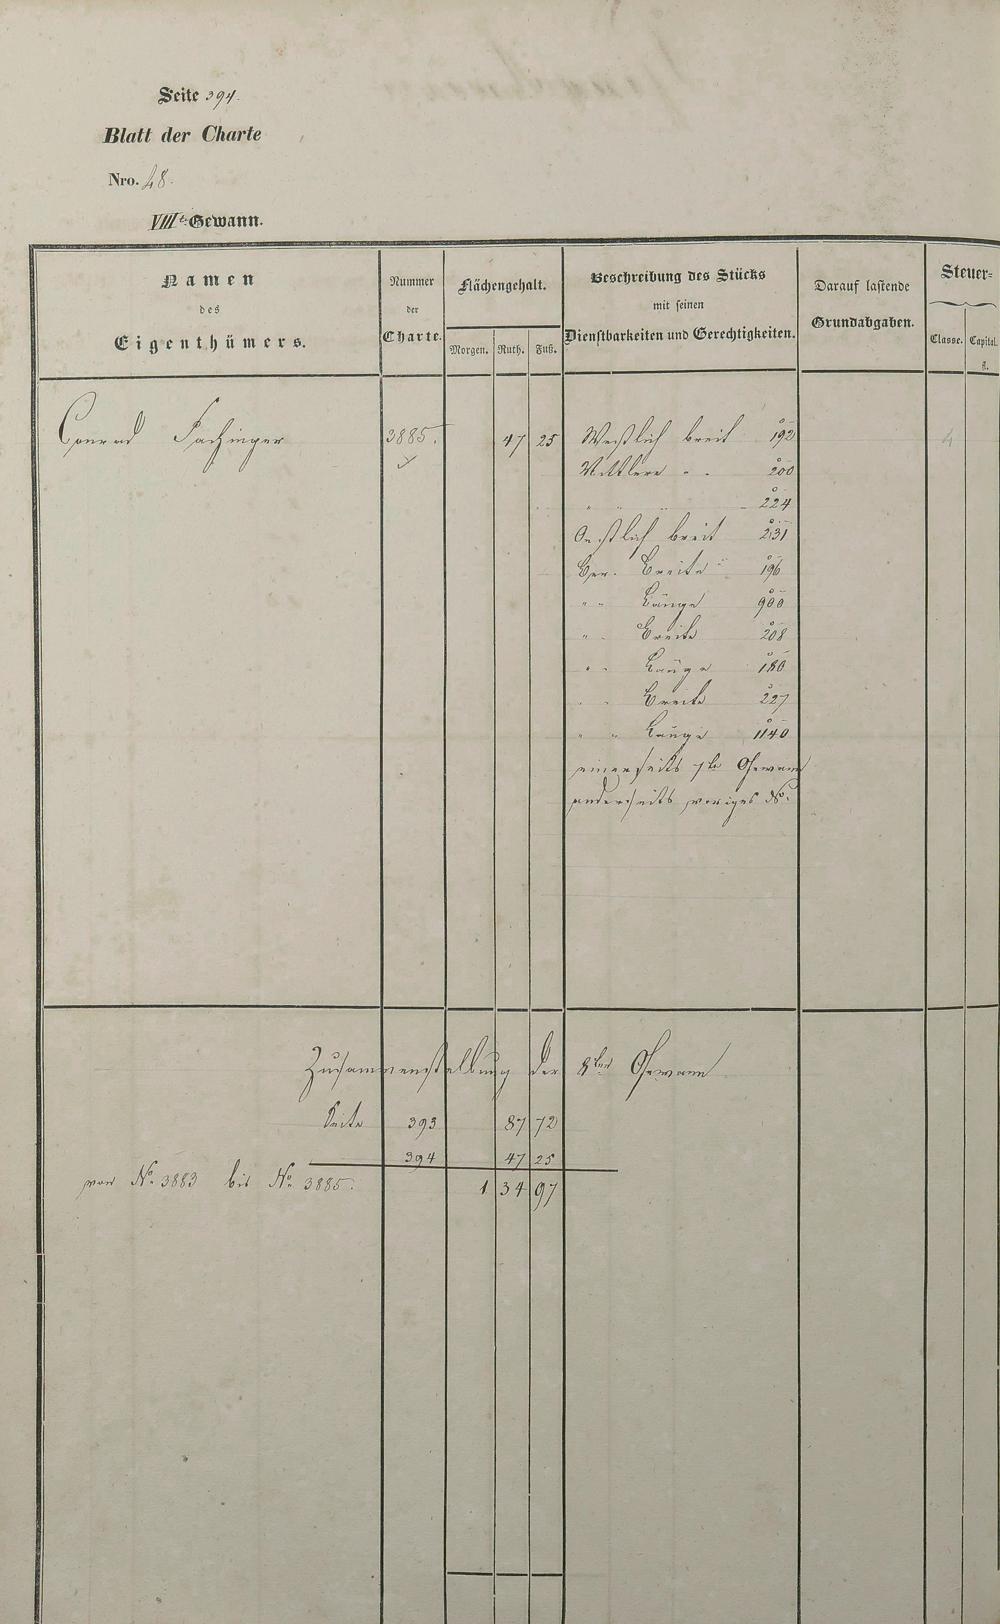 Seite 394.
Blatt der Charte
Nro. 48.
VIIIte Gewann.
Namen des Eigenthümers.
Nummer der Charte.
Flächengehalt.
Morgen. Ruth. Fuß.
Beschreibung des Stücks mit seinen Dienstbarkeiten und Gerechtigkeiten.
Darauf lastende Grundabgaben.
Steuer-
Classe. Capital. fl.
Conrad Fachinger 3885. 47 25 Westlich breit 192 4
Mittlere " " 200
" " " " 224
Oestlich breit 231
Ber. Breite 196
" " Länge 900
" " Breite 208
" " Länge 180
" " Breite 227
" " Länge 1140
einerseits 7te Gewann
anderseits voriges No.
Zusammenstellung der 8ten Gewann
Seite 393 87 72
394 47 25
von No. 3883 bis No. 3885. 1 34 97